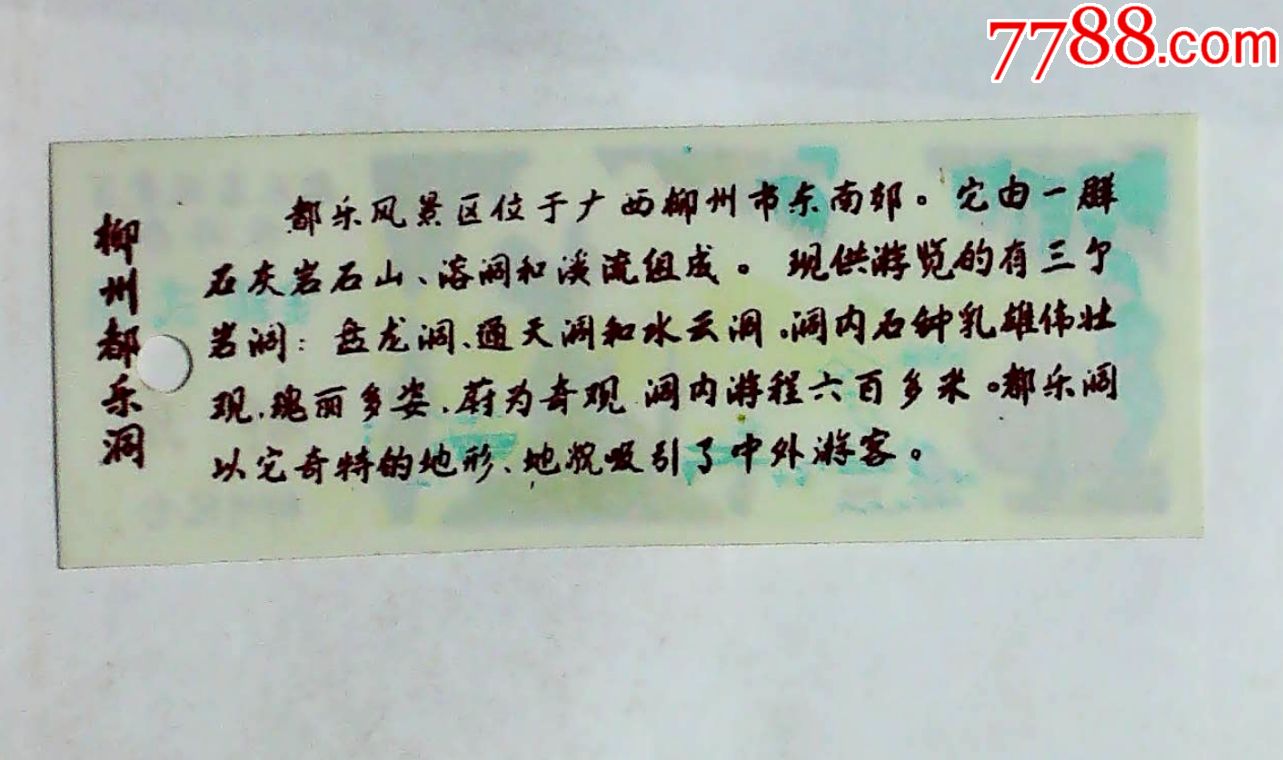 7788.com
柳州都乐洞
都乐风景区位于广西柳州市东南郊。它由一群
石灰岩石山、溶洞和溪流组成。现供游览的有三个
岩洞：盘龙洞、通天洞和水云洞。洞内石钟乳雄伟壮
观、瑰丽多姿、蔚为奇观 洞内游程六百多米。都乐洞
以它奇特的地形、地貌吸引了中外游客。